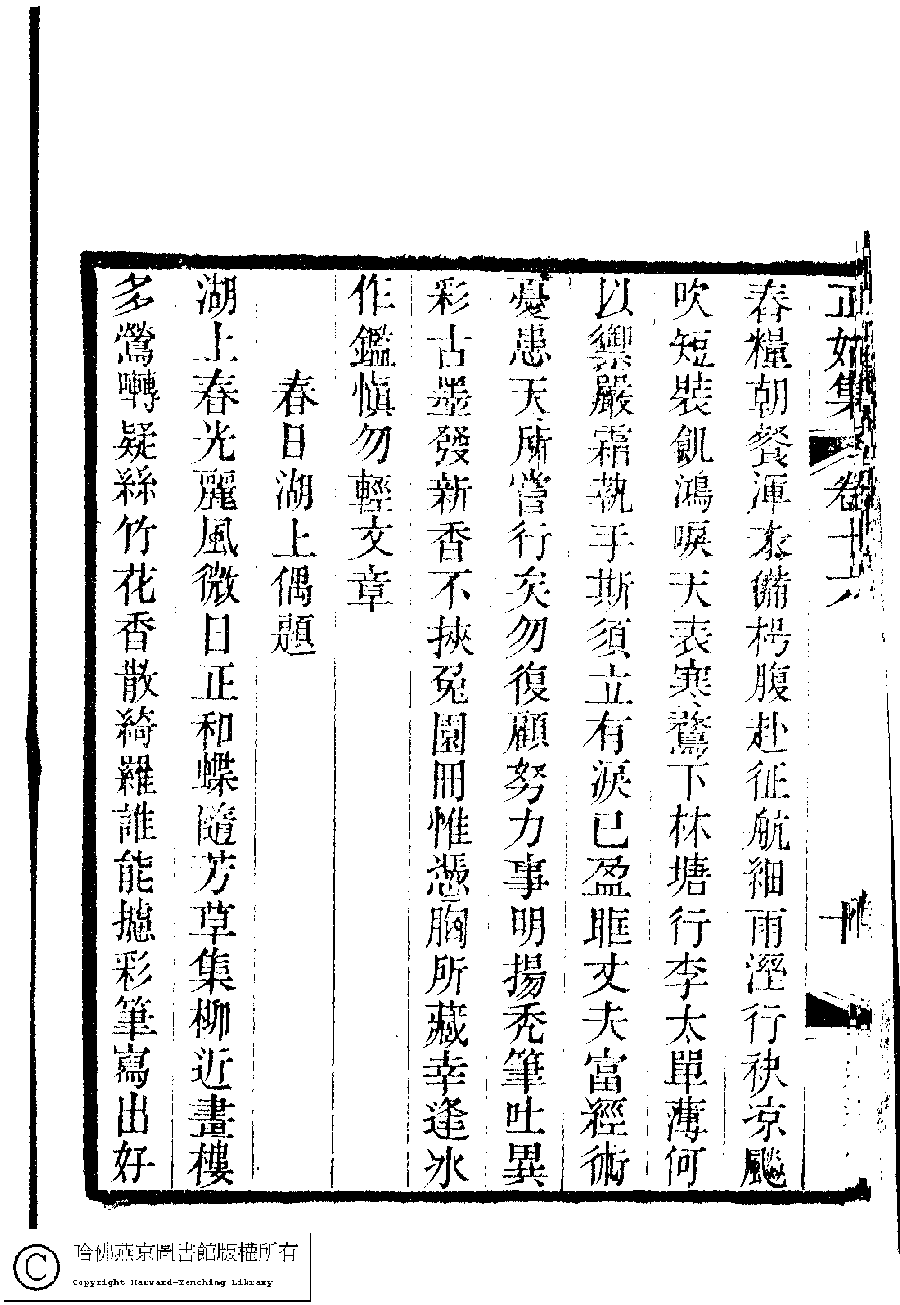 正始集 卷十六
舂糧朝餐渾未備枵腹赴征航細雨溼行袂凉颸
吹短裝飢鴻唳天表寒鶩下林塘行李太單薄何
以禦嚴霜執手斯須立有淚已盈眶丈夫富經術
憂患天所嘗行矣勿復顧努力事明揚禿筆吐異
彩古墨發新香不挾兔園冊惟憑胸所藏幸逢氷
作鑑愼勿輕文章
春日湖上偶題
湖上春光麗風微日正和蝶隨芳草集柳近畫樓
多鶯囀疑絲竹花香散綺羅誰能攄彩筆寫出好
哈佛燕京圖書館版權所有
Copyright Harvard-Yenching Library